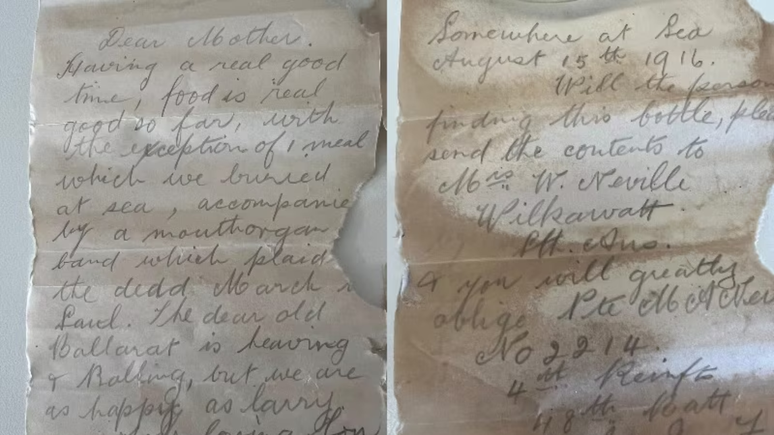 Dear Mother.
Having a real good
time, food is real
good so far, with
the exception of 1 meal
which we buried
at sea, accompanie
by a mouthorgan
band which plaid
the dedd March
Saul. The dear old
Ballarat is heaving
& Rolling, but we are
as happy as larry
Somewhere at Sea
August 15th 1916.
Will the person
finding this bottle, plea
send the contents to
Mrs W. Neville
Wilkawatt.
Sth. Aus.
& you will greatly
oblige Pte M A Nev
No 2214.
4th Reinfts
48th Batt